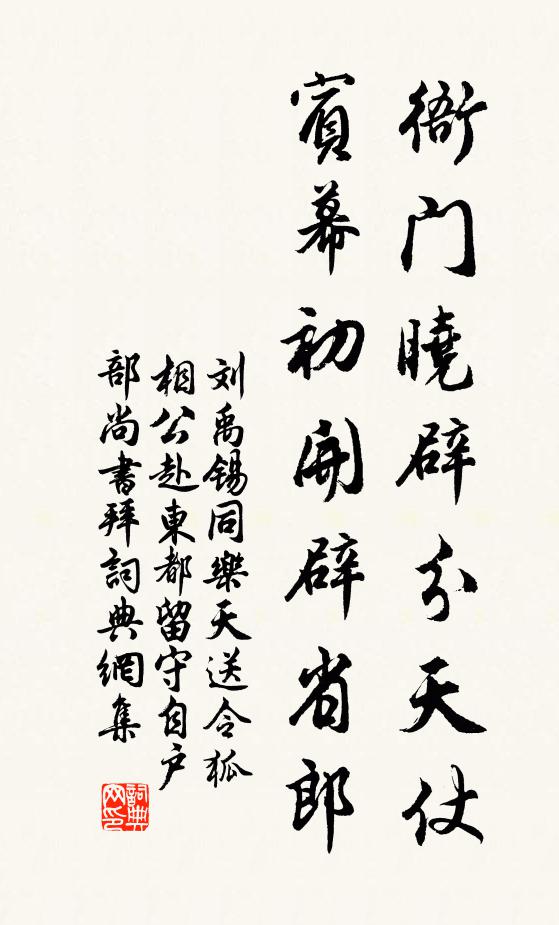 衙门曉辟分天仗
賓幕初開辟省郎
刘禹锡同樂天送令狐
相公赴東都留守自户
部尚書拜詞典網集
詞典网印